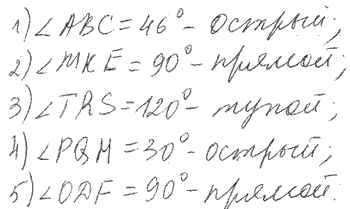 1) ∠ABC = 46° - острый;
2) ∠MKE = 90° - прямой;
3) ∠TRS = 120° - тупой;
4) ∠PQM = 30° - острый;
5) ∠ODF = 90° - прямой.